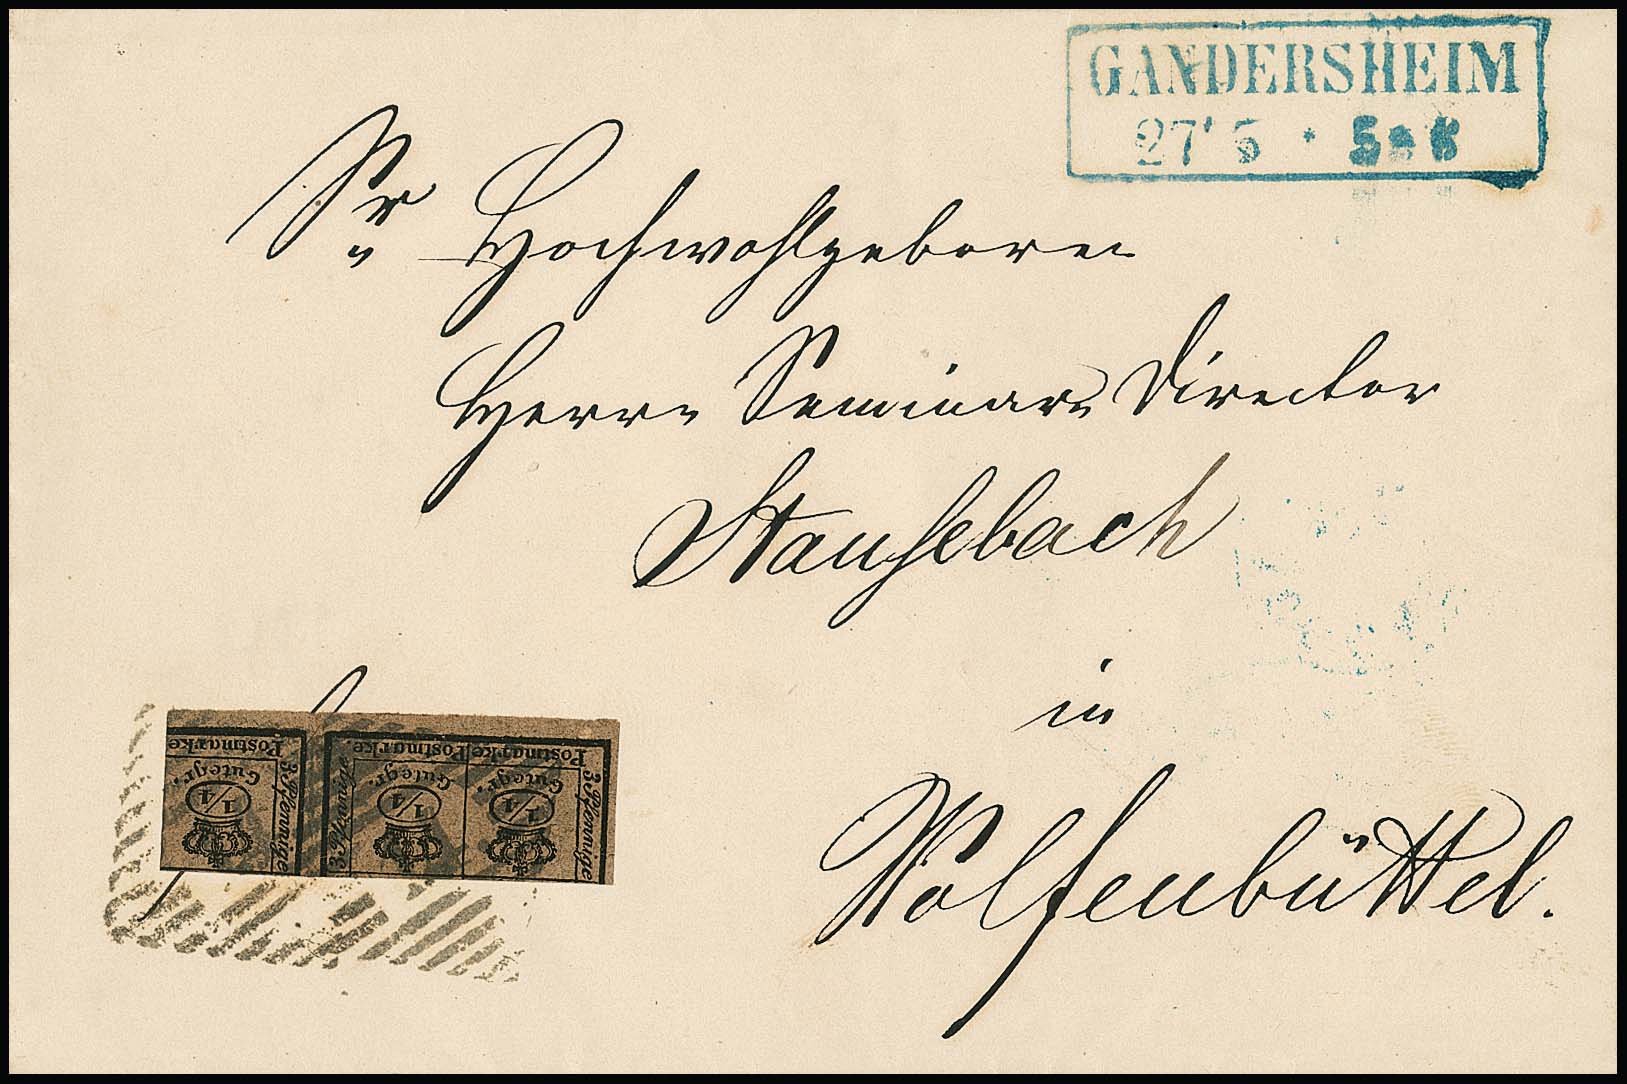 GANDERSHEIM
27 5 *
Sr Hochwohlgeboren
Herrn Seminar Director
Stausebach
in
Wolfenbüttel.
Postmarke. Postmarke. Postmarke Postmarke
3 Pfennige 3 Pfennige 3 Pfennige
Gutegr. Gutegr. Gutegr.
1/4 1/4 1/4